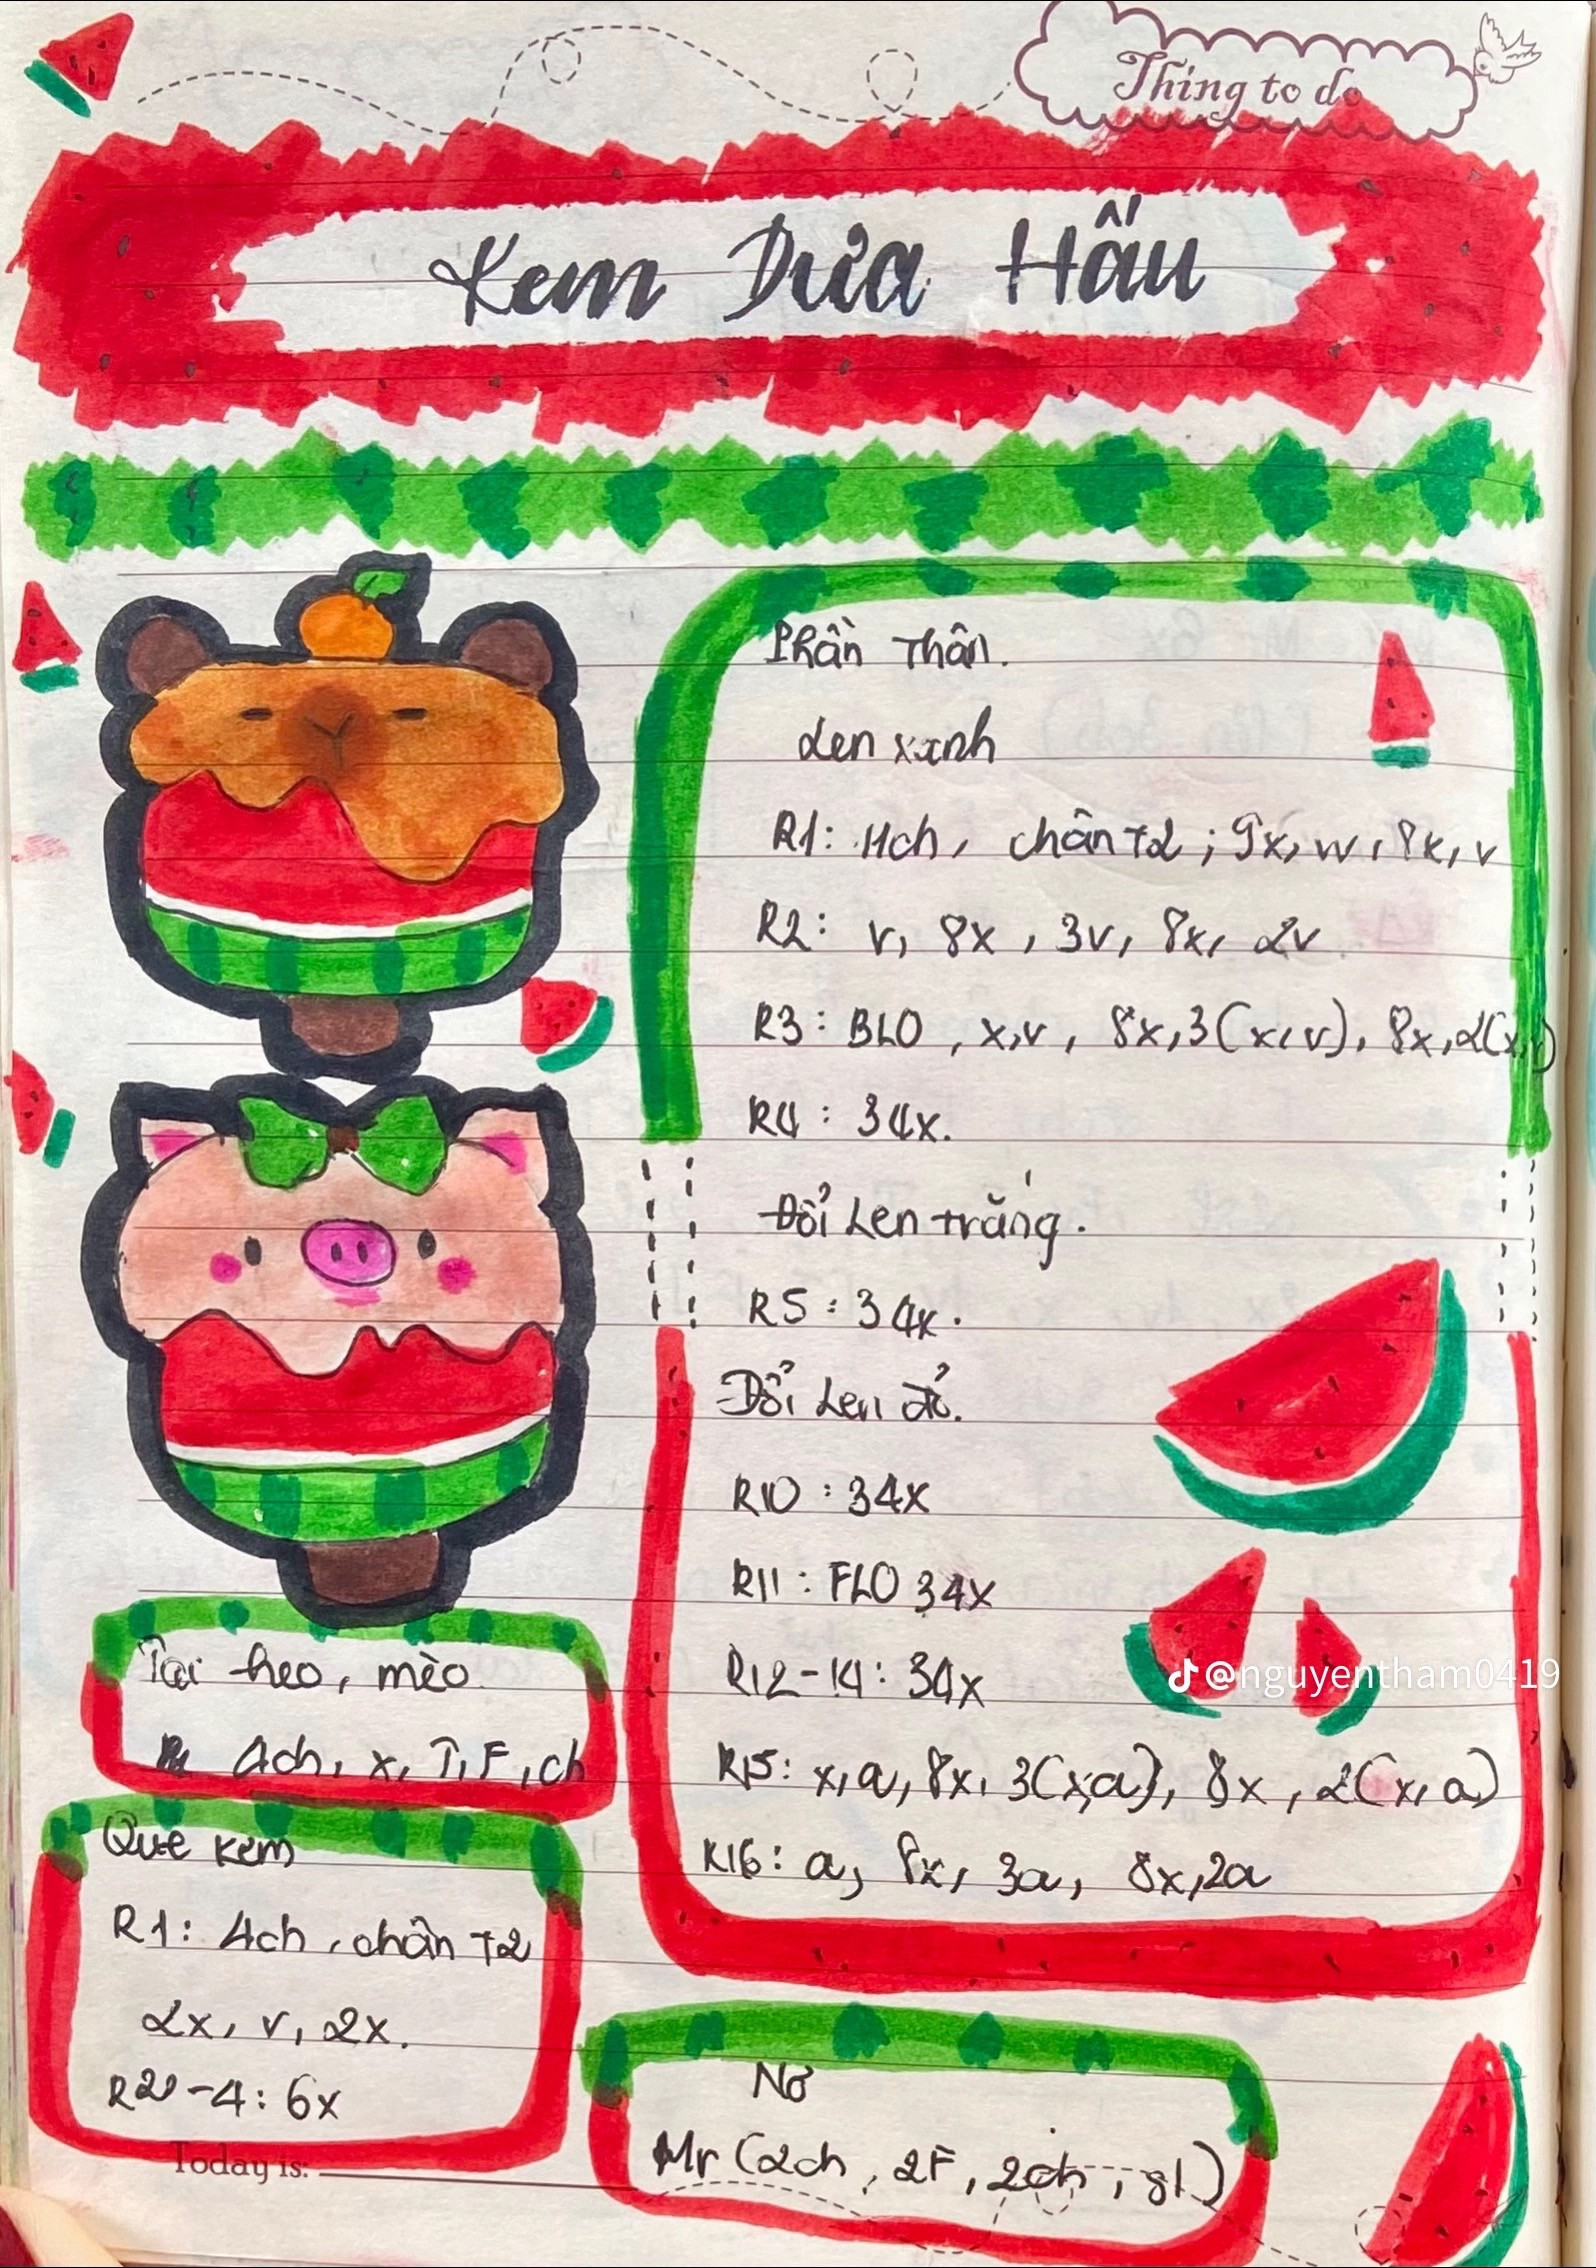 Thing to do
Kem Dưa Hấu
Phần Thân.
Len xanh
R1: 11ch, chân T2; 9x, w, 8x, v
R2: v, 8x, 3v, 8x, 2v
R3: BLO, x,v, 8x,3(x,v), 8x,2(x,v)
R4: 34x.
Đổi Len trắng.
R5: 34x.
Đổi Len đỏ.
R10: 34x
R11: FLO 34x
R12-14: 34x
R15: x,a, 8x, 3(x,a), 8x, 2(x, a)
R16: a, 8x, 3a, 8x,2a
@nguyentham0419
Tai heo, mèo
4ch, x, T, F, ch
Que kem
R1: 4ch, chân T2
2x, v, 2x.
R2-4: 6x
Today is:
Nơ
Mr (2ch, 2F, 2ch, sl)